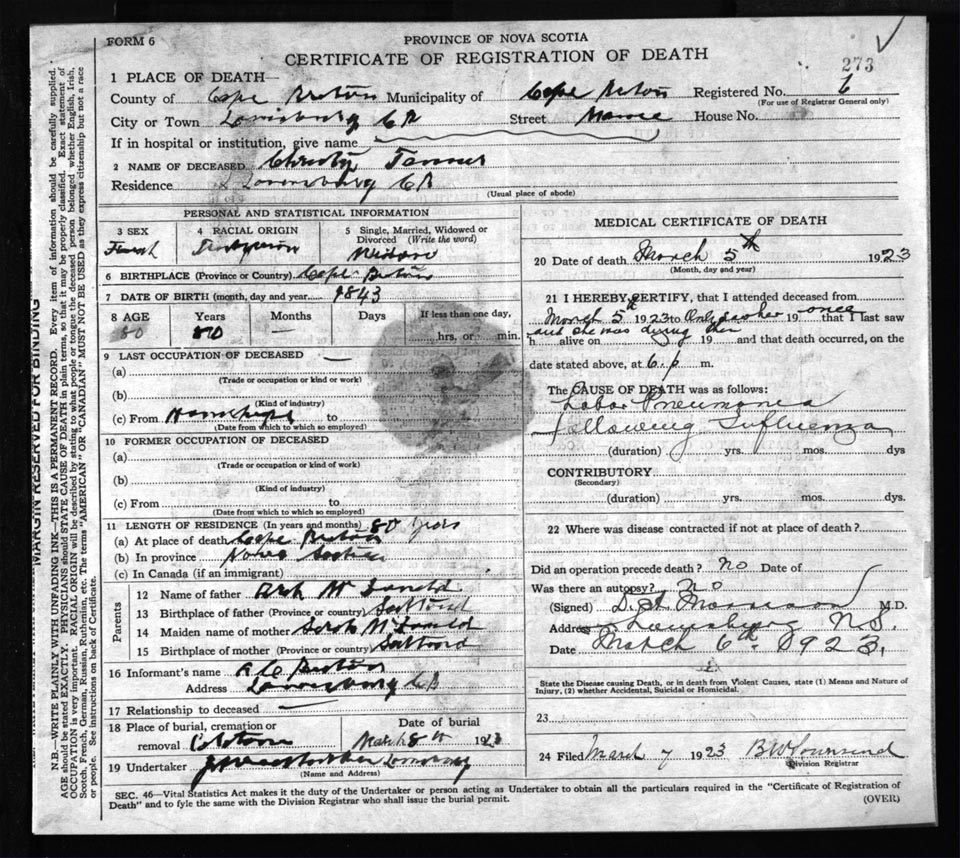 FORM 6
PROVINCE OF NOVA SCOTIA
CERTIFICATE OF REGISTRATION OF DEATH
273
1 PLACE OF DEATH—
County of Cape Breton Municipality of Cape Breton Registered No. 6
(For use of Registrar General only)
City or Town Louisburg CB Street House No.
If in hospital or institution, give name
2 NAME OF DECEASED Christy
Residence Louisburg CB
(Usual place of abode)
PERSONAL AND STATISTICAL INFORMATION
3 SEX 4 RACIAL ORIGIN 5 Single, Married, Widowed or Divorced (Write the word)
Widow
6 BIRTHPLACE (Province or Country) Cape Breton
7 DATE OF BIRTH (month, day and year) 1843
8 AGE Years Months Days If less than one day,
80 80 — hrs. or min.
9 LAST OCCUPATION OF DECEASED —
(a)
(Trade or occupation or kind or work)
(b)
(Kind of industry)
(c) From to
(Date from which to which so employed)
10 FORMER OCCUPATION OF DECEASED
(a)
(Trade or occupation or kind of work)
(b)
(Kind of industry)
(c) From to
(Date from which to which so employed)
11 LENGTH OF RESIDENCE (In years and months) 80 years
(a) At place of death Cape Breton
(b) In province Nova Scotia
(c) In Canada (if an immigrant)
Parents
12 Name of father McDonald
13 Birthplace of father (Province or country)
14 Maiden name of mother Sarah McDonald
15 Birthplace of mother (Province or country)
16 Informant's name
Address Louisburg CB
17 Relationship to deceased —
18 Place of burial, cremation or removal
Date of burial
March 8th 1923
19 Undertaker Louisburg
(Name and Address)
MEDICAL CERTIFICATE OF DEATH
20 Date of death March 5th 1923
(Month, day and year)
21 I HEREBY CERTIFY, that I attended deceased from
March 5th 1923 to Only saw her once 19 that I last saw
and she was dying then
h alive on 19 and that death occurred, on the
date stated above, at 6 p m.
The CAUSE OF DEATH was as follows:
Lobar Pneumonia
following Influenza
(duration) yrs. mos. dys
CONTRIBUTORY
(Secondary)
(duration) yrs. mos. dys.
22 Where was disease contracted if not at place of death?
Did an operation precede death? No Date of
Was there an autopsy? No
(Signed) M.D.
Address Louisburg N.S.
Date March 6th 1923.
State the Disease causing Death, or in death from Violent Causes, state (1) Means and Nature of
Injury, (2) whether Accidental, Suicidal or Homicidal.
23
24 Filed March 7 1923 B W Townsend
Division Registrar
SEC. 46—Vital Statistics Act makes it the duty of the Undertaker or person acting as Undertaker to obtain all the particulars required in the "Certificate of Registration of
Death" and to fyle the same with the Division Registrar who shall issue the burial permit.
(OVER)
MARGIN RESERVED FOR BINDING
N.B.—WRITE PLAINLY WITH UNFADING INK—THIS IS A PERMANENT RECORD. Every item of information should be carefully supplied.
AGE should be stated EXACTLY. PHYSICIANS should STATE CAUSE OF DEATH in plain terms, so that it may be properly classified. Exact statement of
OCCUPATION is very important. RACIAL ORIGIN will be described by stating to what people or tongue the deceased person belonged, whether English, Irish,
Scotch, French, German, Russian, Ruthenian, etc. The terms "AMERICAN" OR "CANADIAN" MUST NOT BE USED as they express citizenship but not a race
or people. See instructions on back of Certificate.